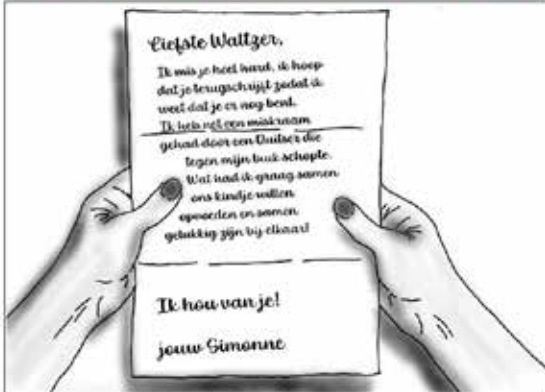 Liefste Waltzer,
Ik mis je heel hard, ik hoop
dat je terugschrijft zodat ik
weet dat je er nog bent.
Ik heb net een miskraam
gehad door een Duitser die
tegen mijn buik schopte.
Wat had ik graag samen
ons kindje willen
opvoeden en samen
gelukkig zijn bij elkaar!
Ik hou van je!
jouw Simonne